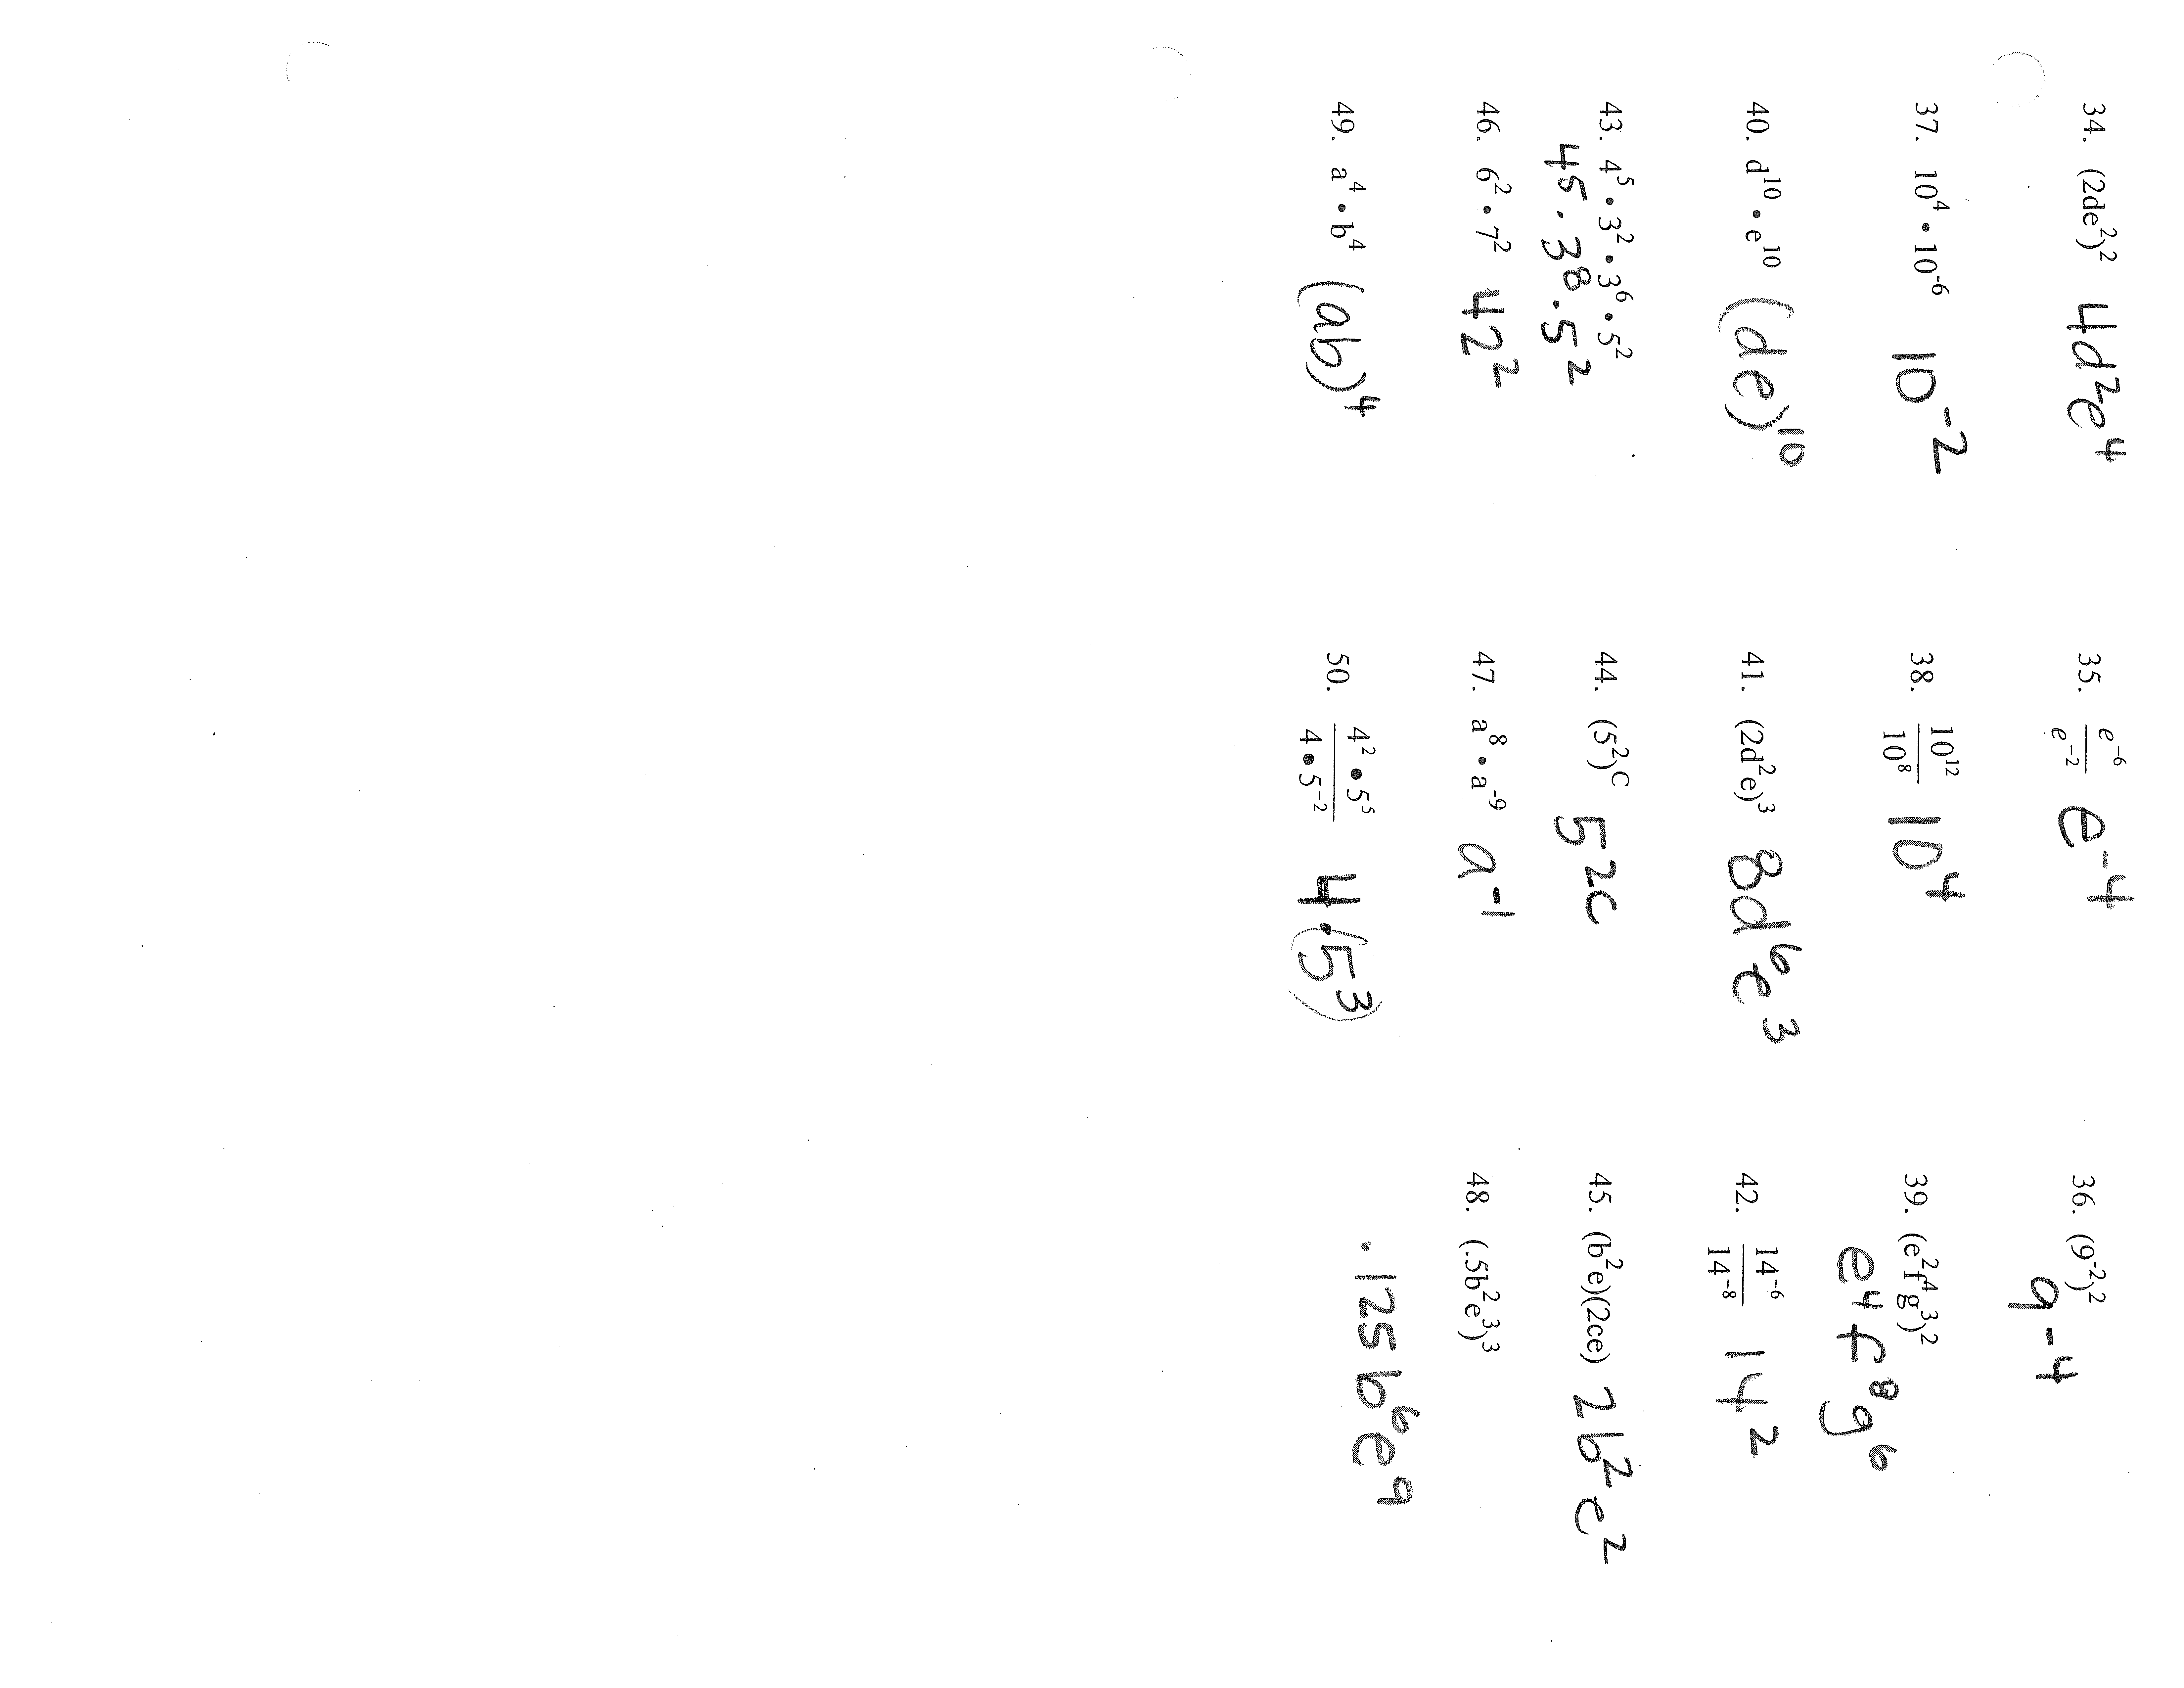 34. (2de²)² 4d²e⁴
35. e⁻⁶/e⁻² e⁻⁴
36. (9⁻²)²
9⁻⁴
37. 10⁴ • 10⁻⁶ 10⁻²
38. 10¹²/10⁸ 10⁴
39. (e²f⁴g³)²
e⁴f⁸g⁶
40. d¹⁰ • e¹⁰ (de)¹⁰
41. (2d²e)³ 8d⁶e³
42. 14⁻⁶/14⁻⁸ 14²
43. 4⁵ • 3² • 3⁶ • 5²
4⁵ . 3⁸ . 5²
44. (5²)ᶜ 5²ᶜ
45. (b²e)(2ce) 2b²e²
46. 6² • 7² 42²
47. a⁸ • a⁻⁹ a⁻¹
48. (.5b²e³)³
.125b⁶e⁹
49. a⁴ • b⁴ (ab)⁴
50. 4² • 5⁵/4 • 5⁻² 4.(5³)